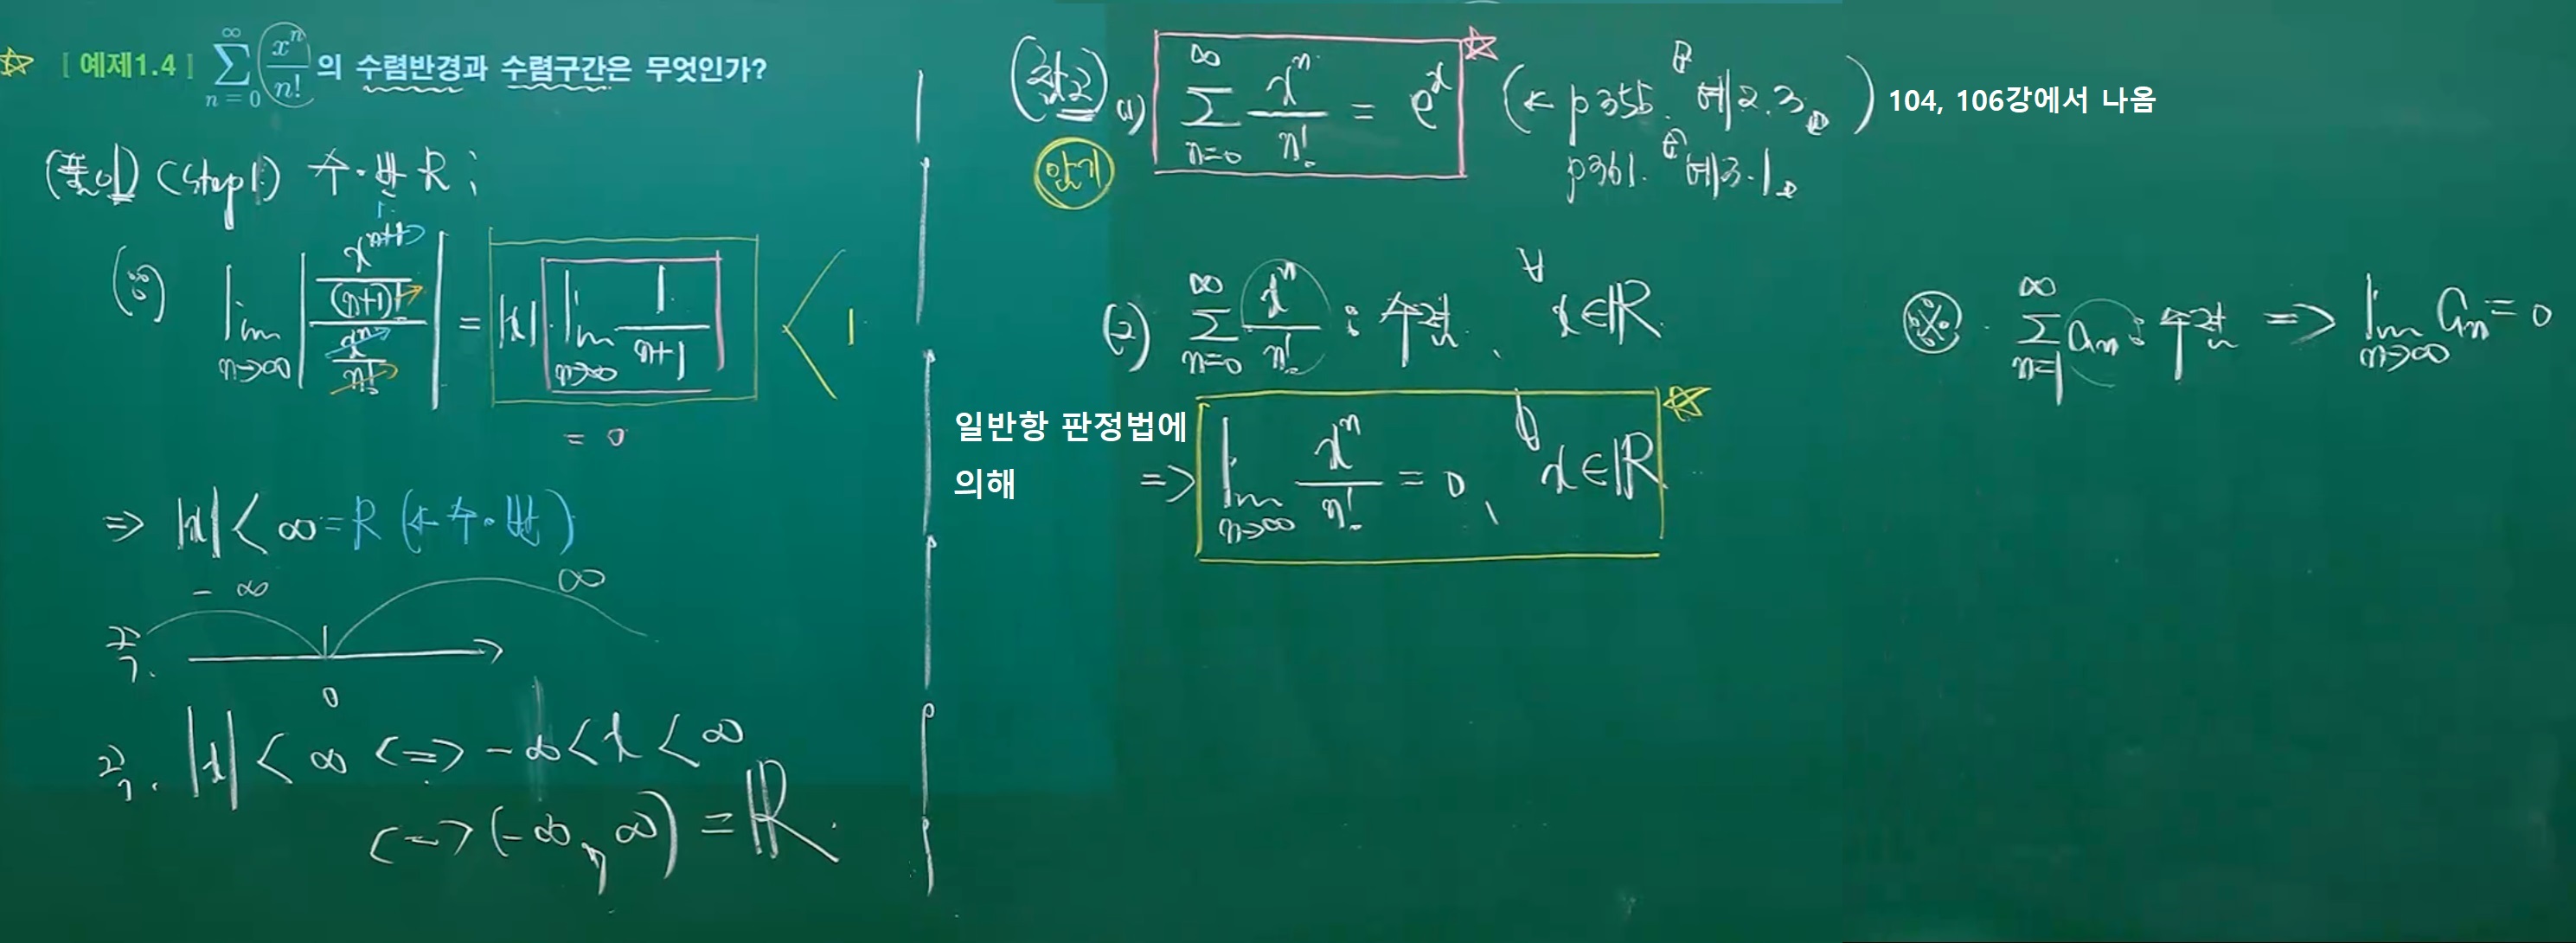 ☆ [ 예제1.4 ] $\sum_{n=0}^{\infty} \frac{x^n}{n!}$ 의 수렴반경과 수렴구간은 무엇인가?
(풀이) (Step1) 수·반 R ;
(∵) $\lim_{n\to\infty} \left| \frac{\frac{x^{n+1}}{(n+1)!}}{\frac{x^n}{n!}} \right| = |x| \cdot \lim_{n\to\infty} \frac{1}{n+1} < 1$
= 0
⇒ |x| < ∞ = R (← 수·반)
- ∞ ∞
0
|x| < ∞ <=> -∞ < x < ∞
<=> (-∞, ∞) = ℝ.
(참고2) (1) $\sum_{n=0}^{\infty} \frac{x^n}{n!} = e^x$ ☆ (← p355. 예2.3. ) 104, 106강에서 나옴
암기 p361. 예3.1.
(2) $\sum_{n=0}^{\infty} \frac{x^n}{n!}$ : 수렴, ∀x∈ℝ.
일반항 판정법에
의해 => $\lim_{n\to\infty} \frac{x^n}{n!} = 0$, ∀x∈ℝ ☆
※. $\sum_{n=1}^{\infty} a_n$ : 수렴 => $\lim_{n\to\infty} a_n = 0$